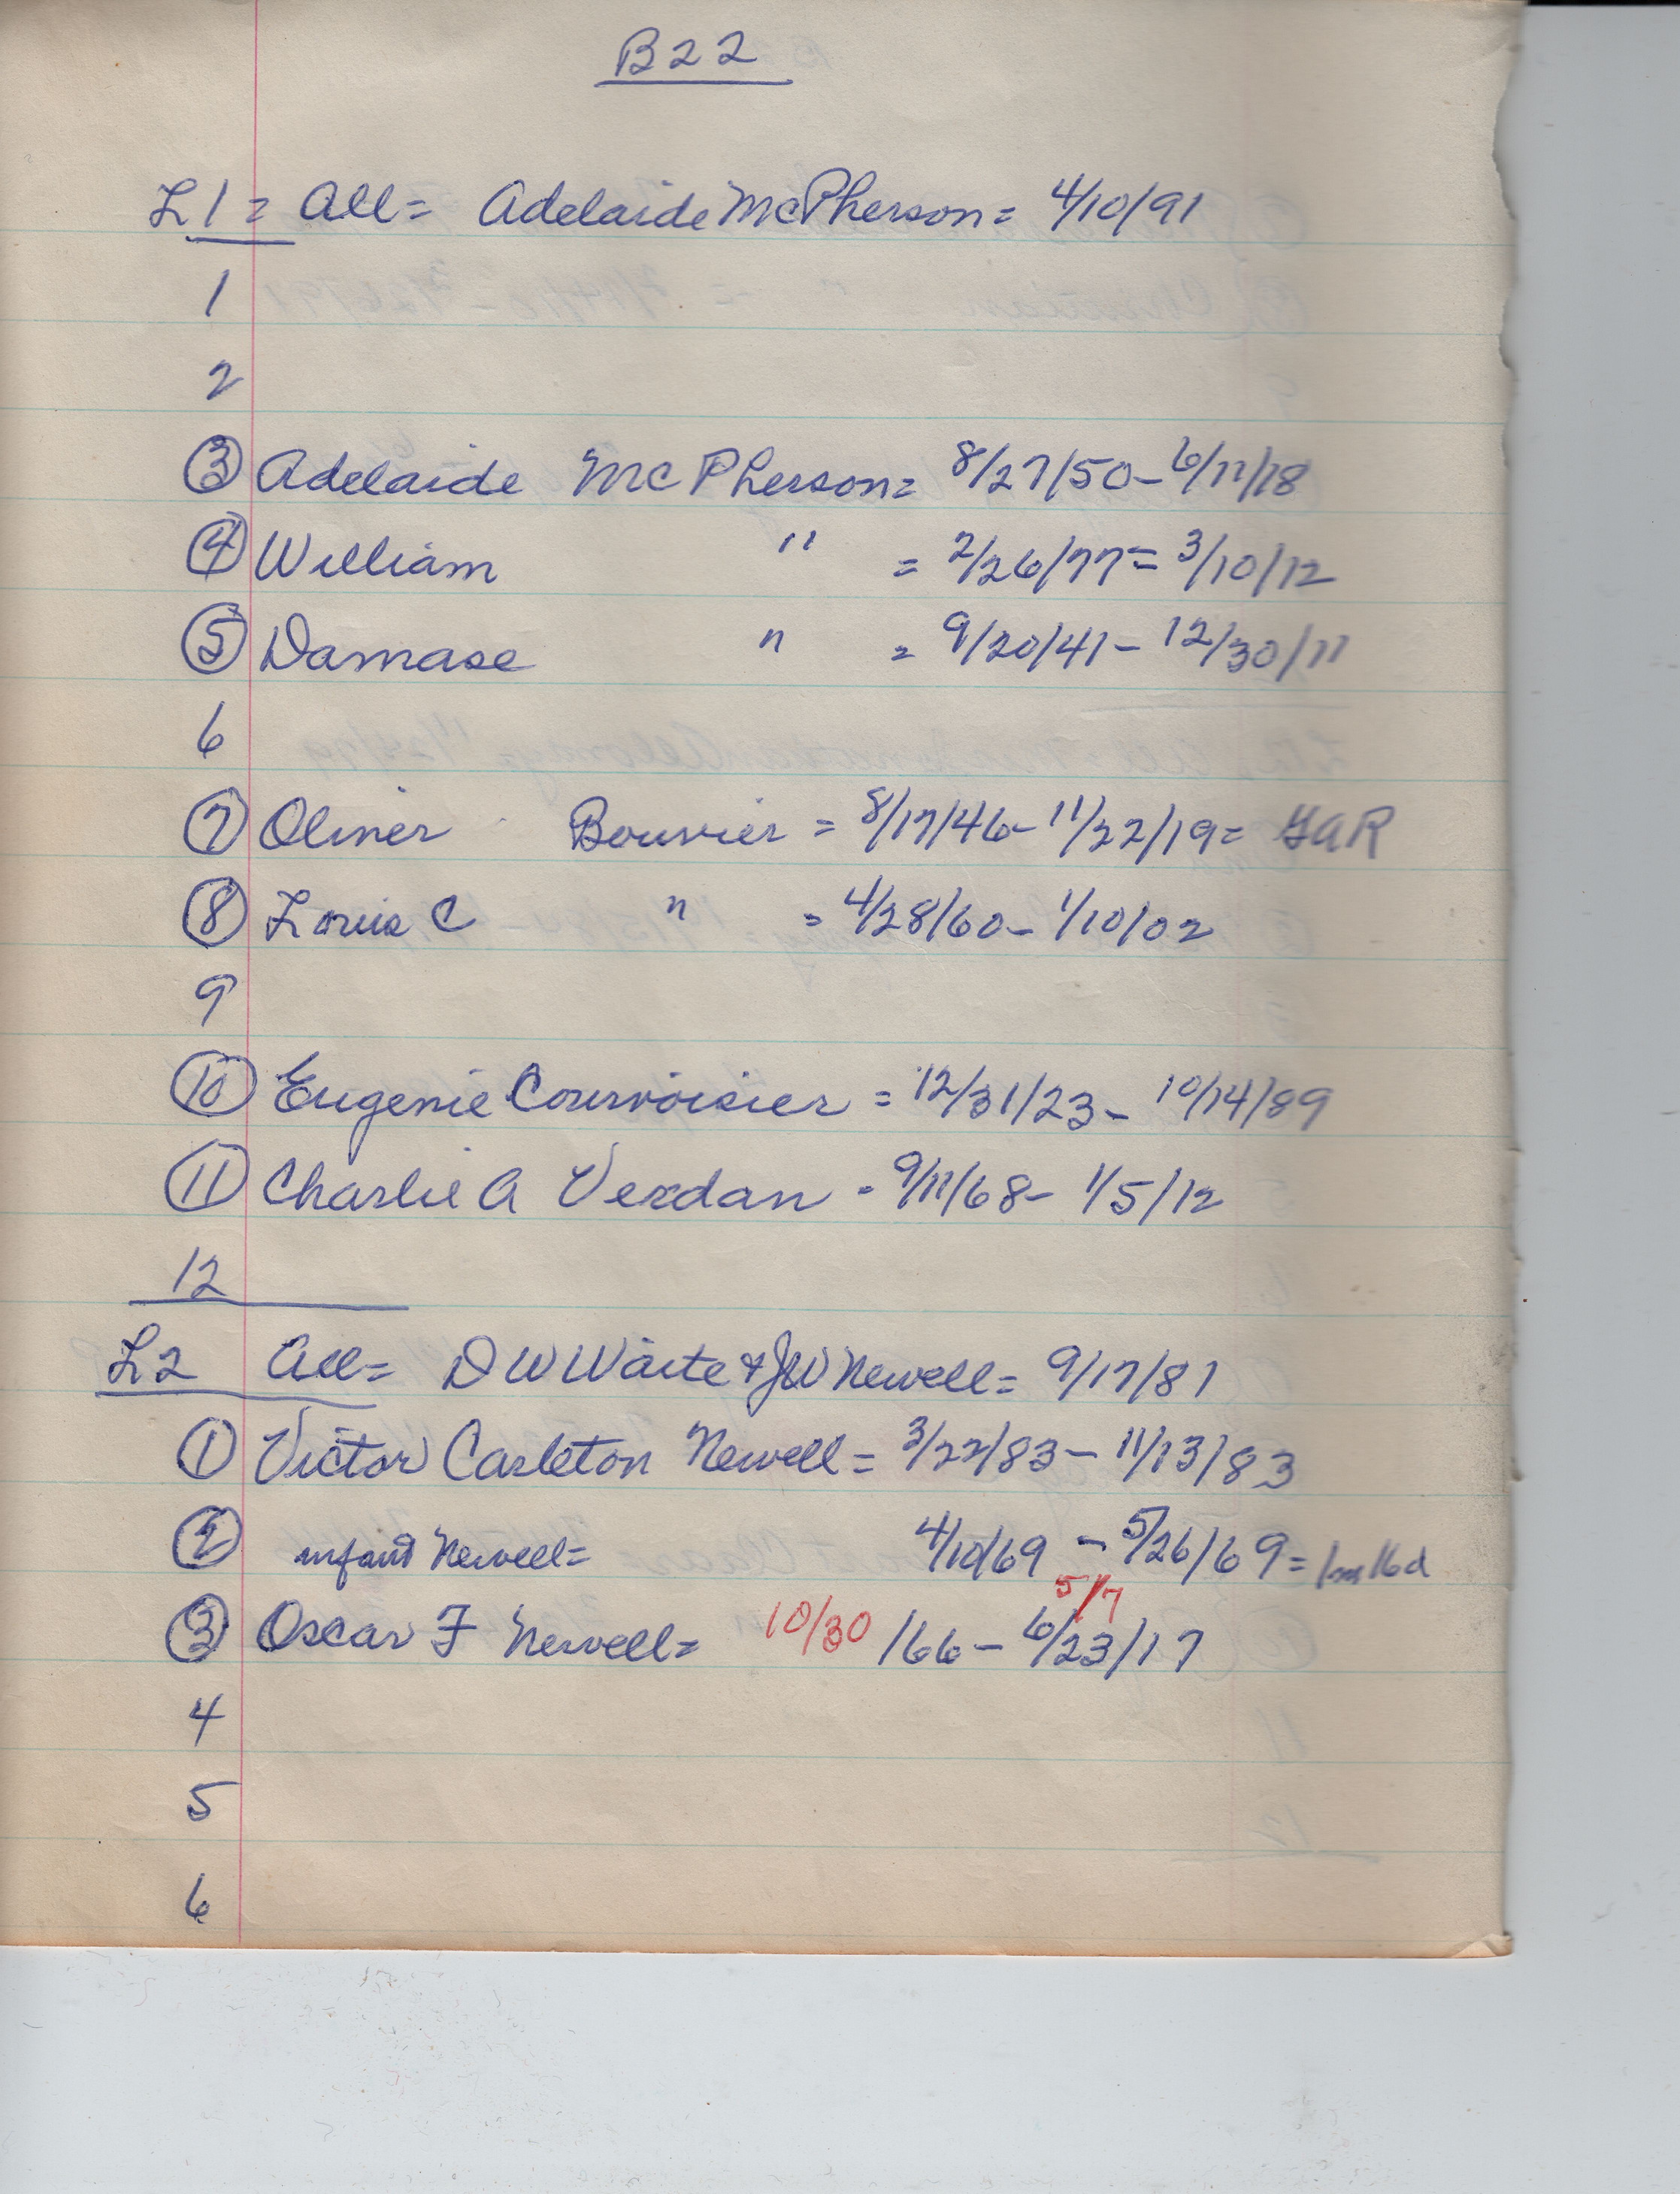 B22
L1 = All = Adelaide McPherson = 4/10/91
1
2
3 Adelaide McPherson = 8/27/50 - 6/11/18
4 William " = 2/26/77 = 3/10/12
5 Damase " = 9/20/41 - 12/30/11
6
7 Oliver Bouvier = 8/17/46 - 11/22/19 = GAR
8 Louis C " = 4/28/60 - 1/10/02
9
10 Eugenie Courvoisier = 12/31/23 - 10/14/89
11 Charlie A Verdan - 9/11/68 - 1/5/12
12
L2 All = D W Waite & JW Newell = 9/17/81
1 Victor Carleton Newell = 3/22/83 - 11/13/83
2 infant Newell = 4/10/69 - 5/26/69 = 1m16d
5/7
3 Oscar F Newell = 10/30/66 - 6/23/17
4
5
6